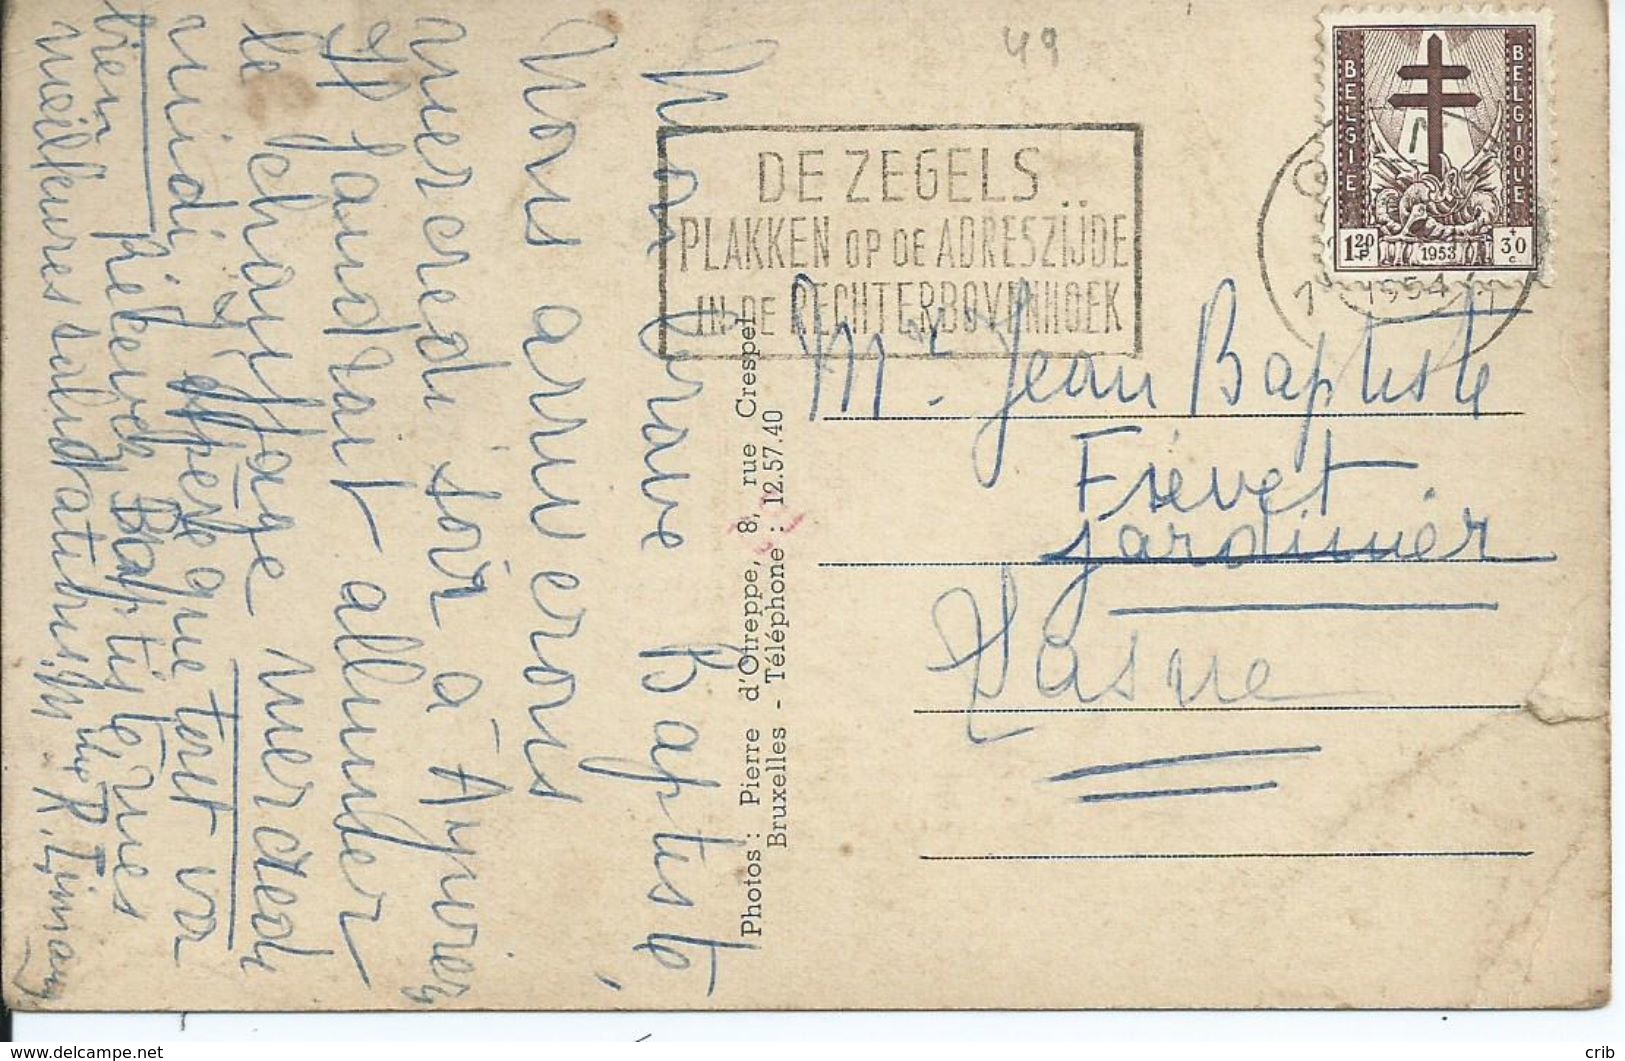 49
BELGIE
BELGIQUE
1 20 F
1953
+ 30 c
1954
DE ZEGELS
PLAKKEN OP DE ADRESZIJDE
IN DE RECHTERBOVENHOEK
Mr Jean Baptiste
Frévet
jardinier
Photos : Pierre d'Otreppe, 8, rue Crespel
Bruxelles - Téléphone : 12.57.40
Mon brave Baptiste,
Nous arriverons
mercredi soir à
Il faudrait allumder
le chauffage mercredi
midi. J'espère que tout va
bien Rielevez Baptistemes
meilleures salutations. R. Timany
crib